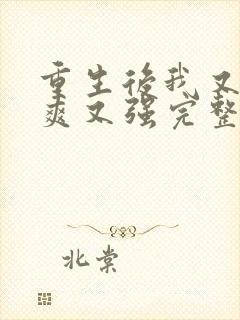 重生後我又
爽又强完整
北棠